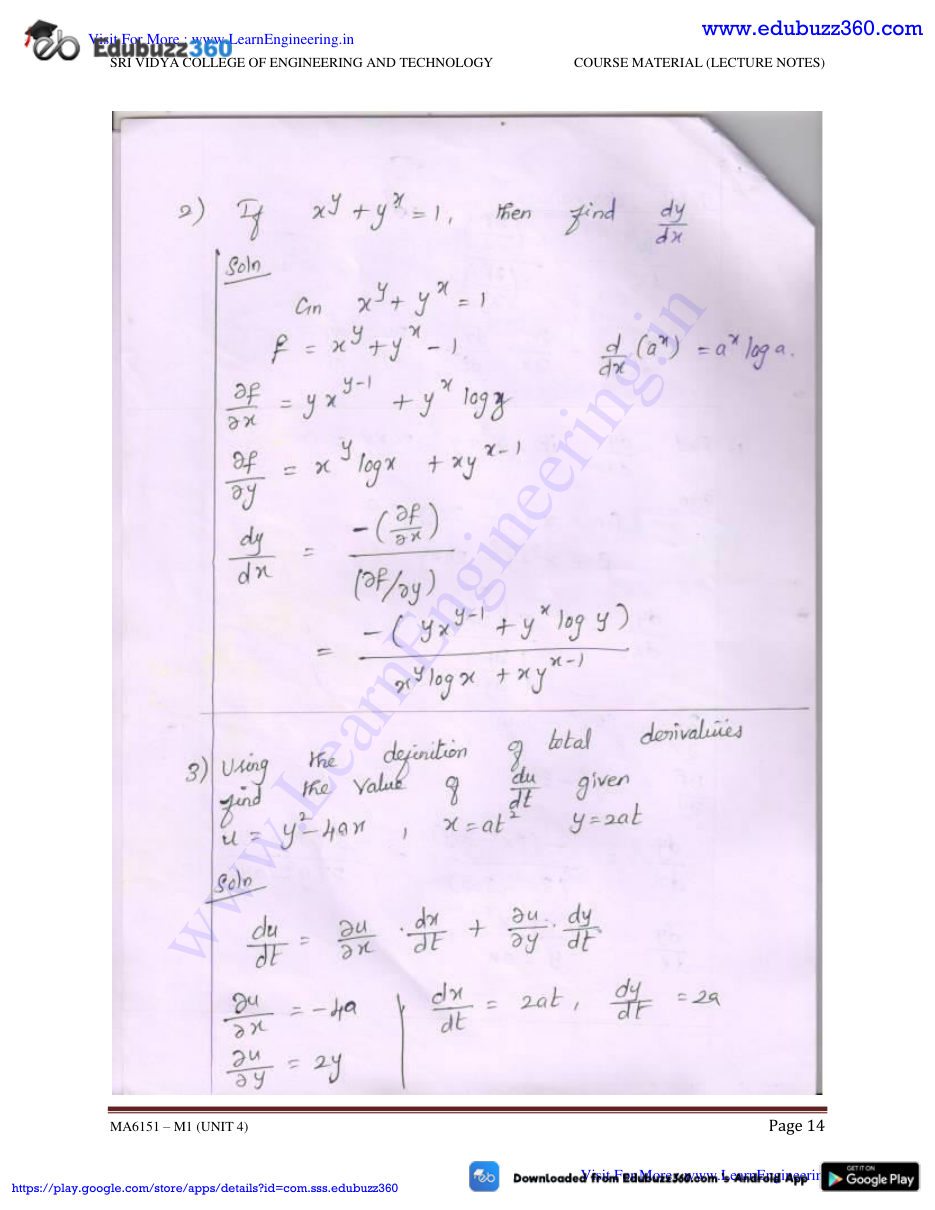 www.edubuzz360.com
Visit For More : www.LearnEngineering.in
Edubuzz360
SRI VIDYA COLLEGE OF ENGINEERING AND TECHNOLOGY COURSE MATERIAL (LECTURE NOTES)
2) If x^y + y^x = 1, then find dy/dx
Soln
Gn x^y + y^x = 1
f = x^y + y^x - 1 d/dx (a^x) = a^x log a.
∂f/∂x = yx^{y-1} + y^x log y
∂f/∂y = x^y log x + xy^{x-1}
dy/dx = -(∂f/∂x) / (∂f/∂y)
= -(yx^{y-1} + y^x log y) / x^y log x + xy^{x-1}
3) Using the definition of total derivatives
find the value of du/dt given
u = y^2 - 4ax , x = at^2 y = 2at
Soln
du/dt = ∂u/∂x · dx/dt + ∂u/∂y · dy/dt
∂u/∂x = -4a | dx/dt = 2at , dy/dt = 2a
∂u/∂y = 2y
www.LearnEngineering.in
MA6151 – M1 (UNIT 4) Page 14
https://play.google.com/store/apps/details?id=com.sss.edubuzz360
Downloaded from EduBuzz360.com 's Android App
Visit For More : www.LearnEngineerin
GET IT ON
Google Play